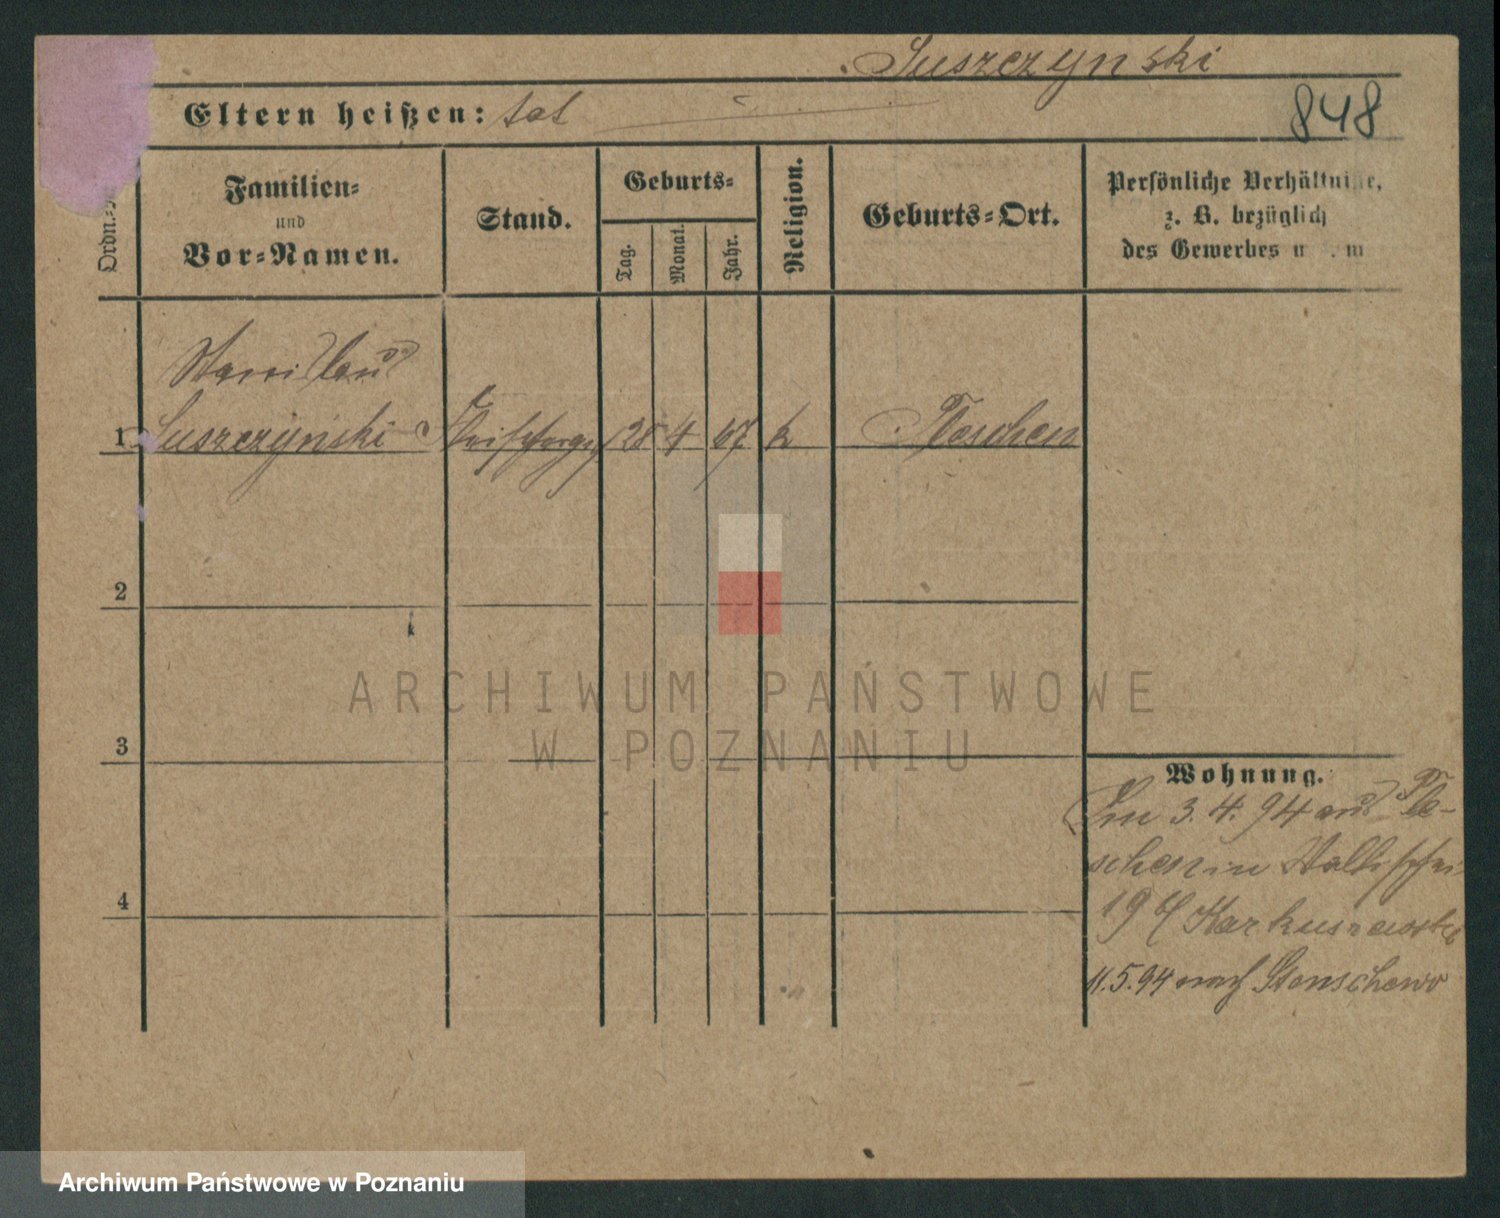 Suszczynski
Eltern heißen: tot
848
Ordn.
Familien-
und
Vor-Namen.
Stand.
Geburts-
Tag.
Monat.
Jahr.
Religion.
Geburts-Ort.
Persönliche Verhältnisse,
z. B. bezüglich
des Gewerbes u m
Stanislaus
1 Suszczynski 28 4 67 k Pleschen
2
3
4
Wohnung.
3. 4. 94 aus Ple-
schen in Wallischei
19 b/
11.5.94 nach Stenschewo
ARCHIWUM PAŃSTWOWE
W POZNANIU
Archiwum Państwowe w Poznaniu